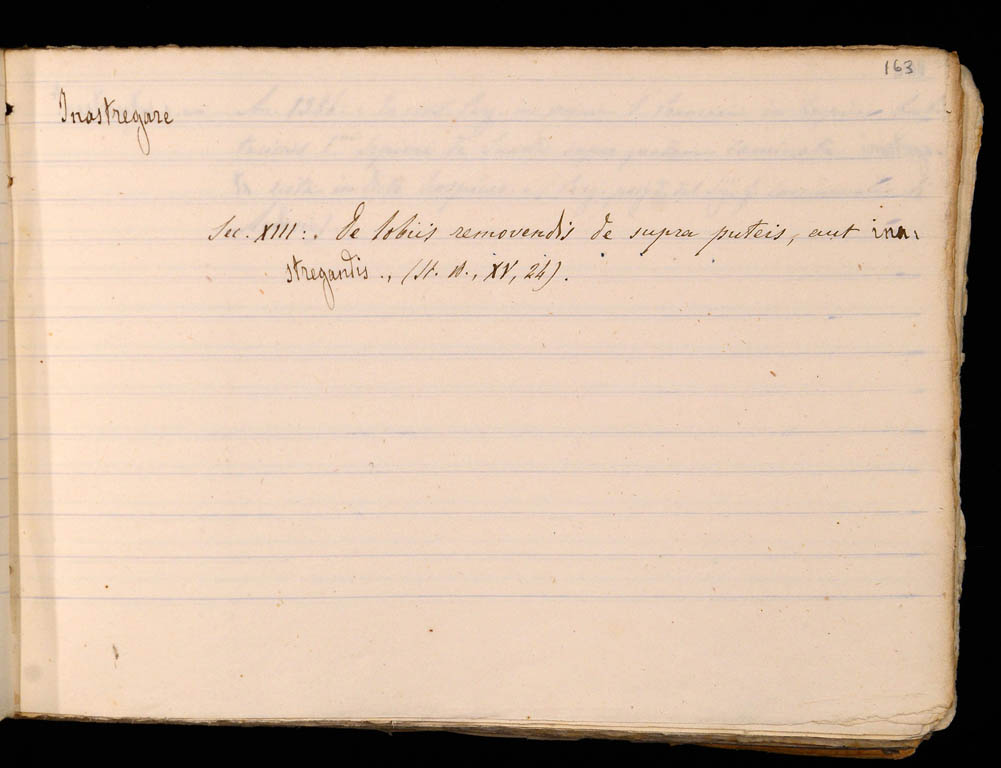 163
Inastregare
Sec. XIII: . De lobiis removendis de supra puteis, aut ina-
stregandis . , (St. D., XV, 24).